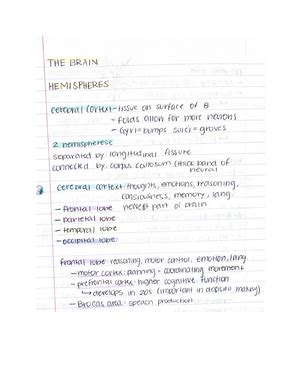 THE BRAIN
HEMISPHERES
cerebral cortex - tissue on surface of B
- folds allow for more neurons
- Gyri = bumps sulci = groves
2 hemispherese
separated by longitudinal fissure
connected by: corpus callosum (thick band of
neural
cerebral cortex: thoughts, emotions, reasoning,
consiousness, memory, lang.
- frontal lobe newest part of brain
- parietal lobe
- temporal lobe
- occipital lobe
frontal lobe: reasoning, motor control, emotion, lang
- motor cortex: planning + coordinating movement
- prefrontal cortex: higher cognitive function
↳ develops in 20s (important in decision making)
- Brocas area: speach production